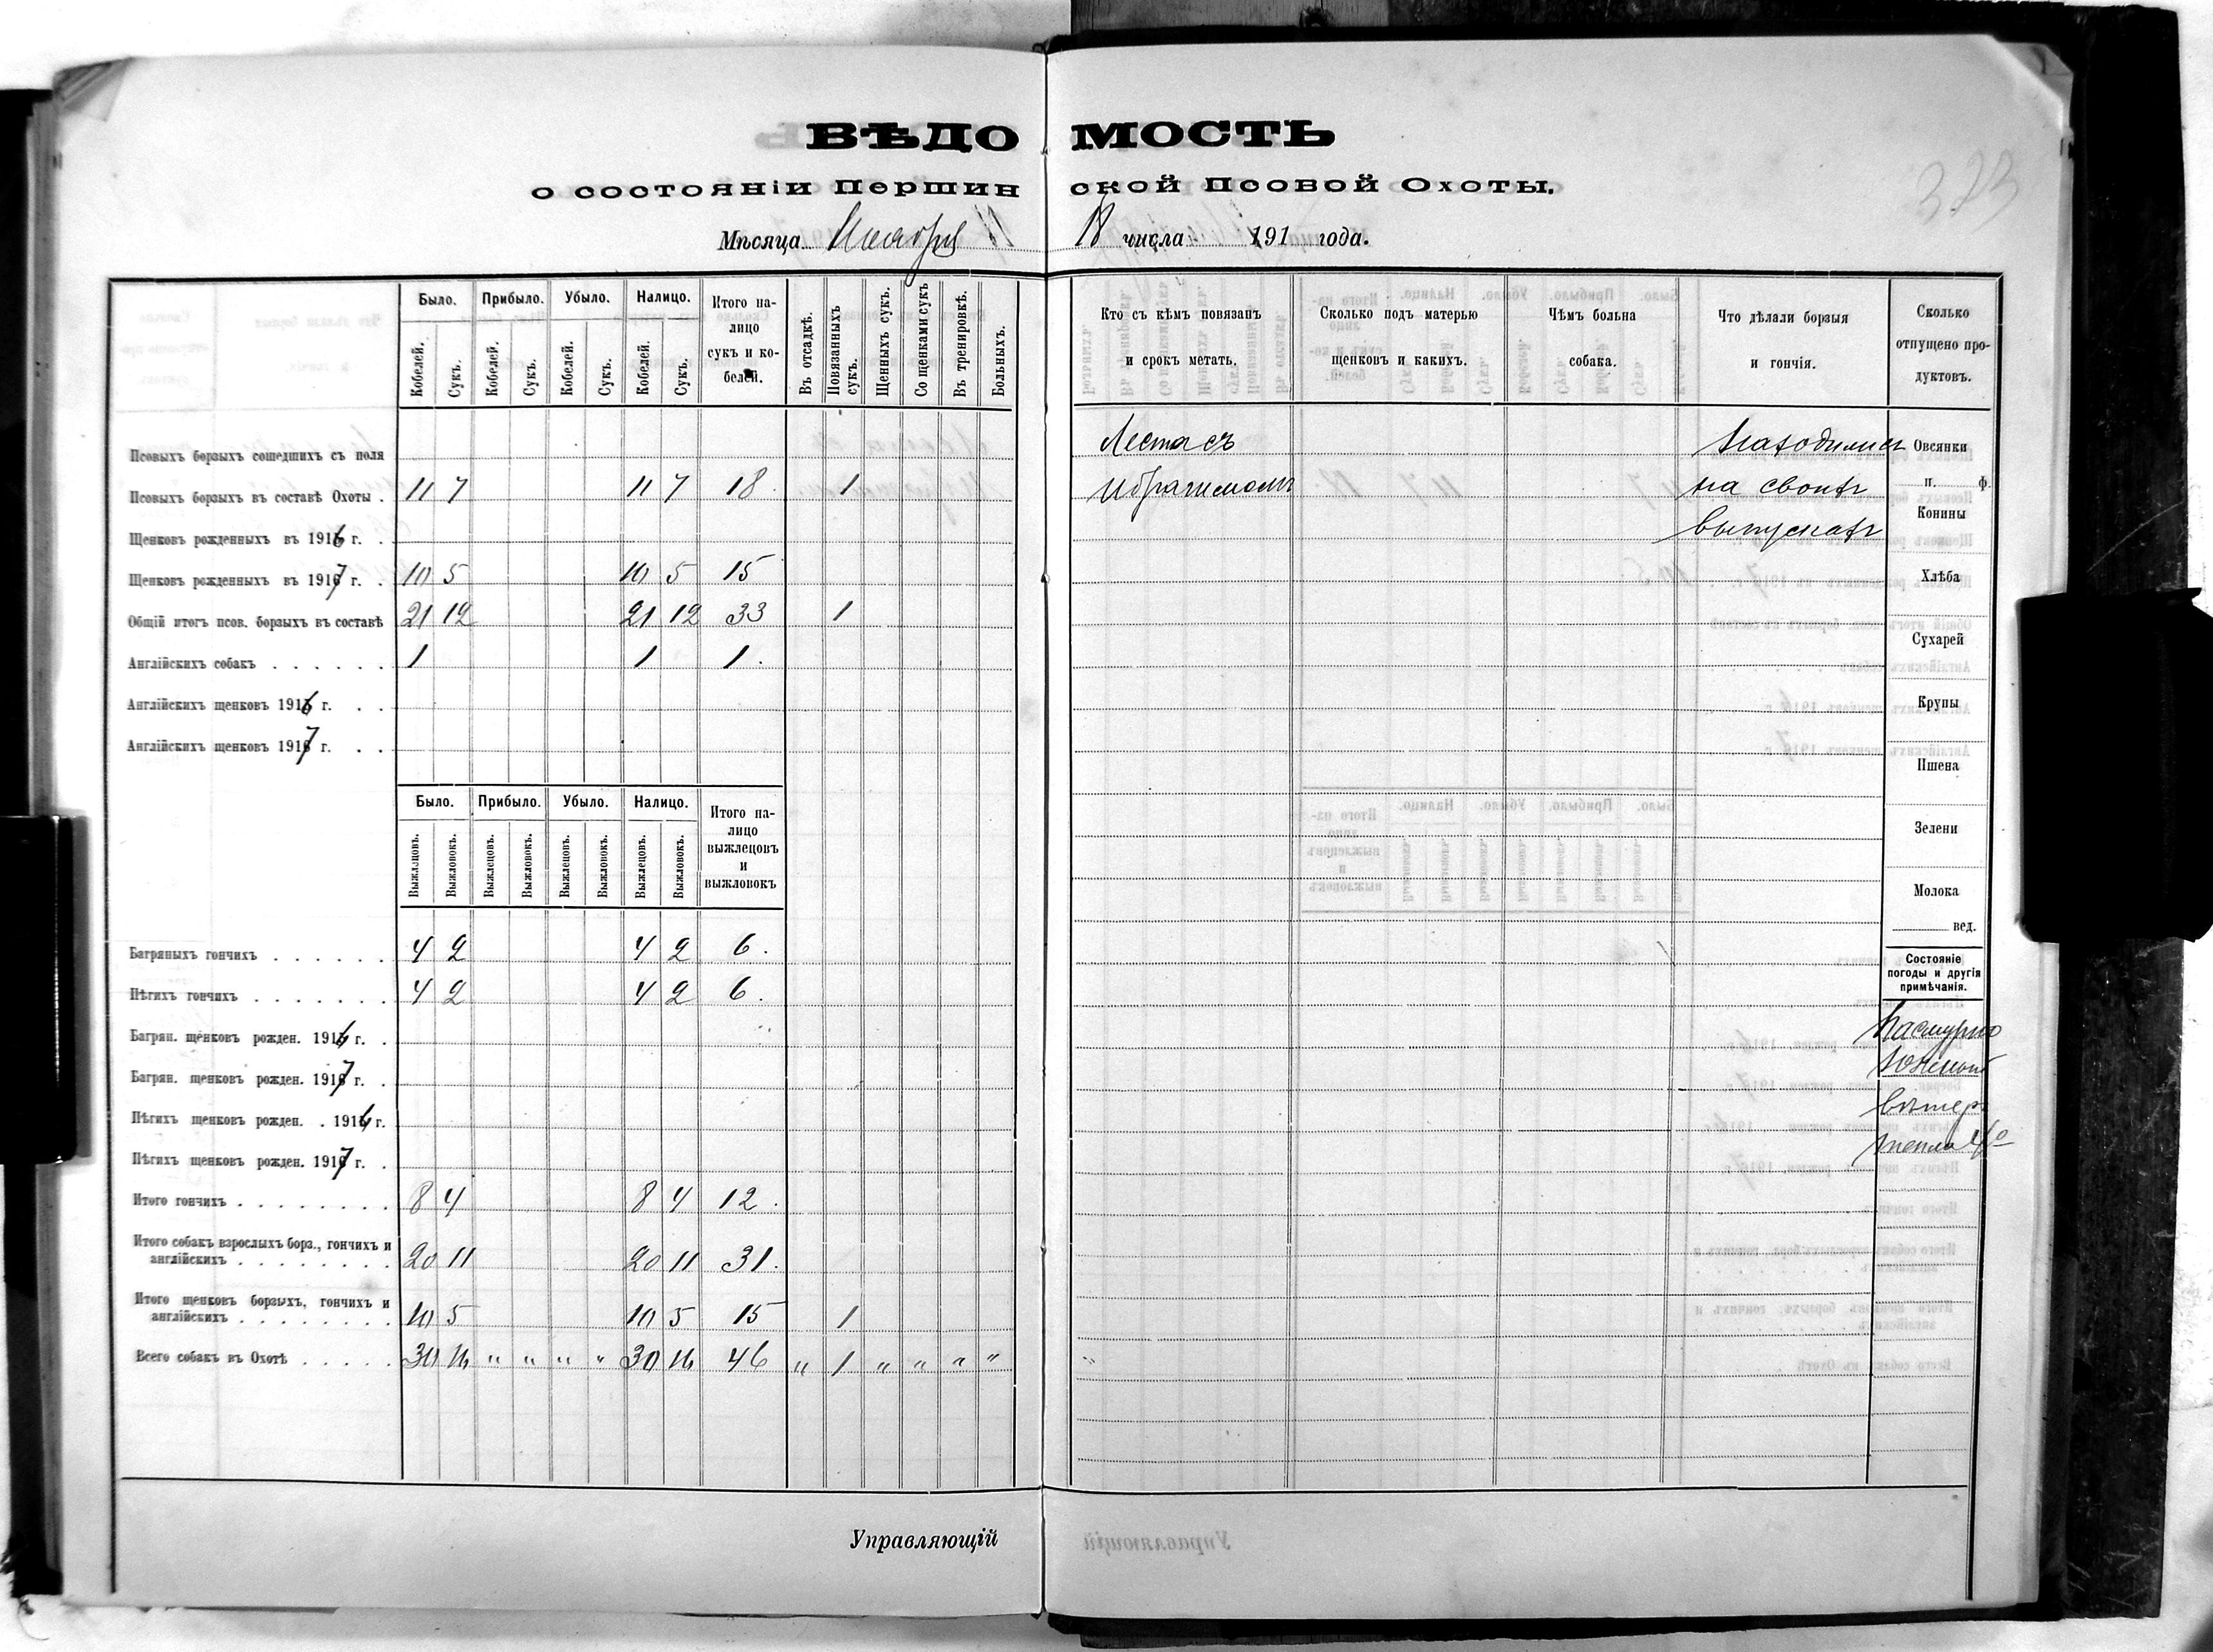 ВѢДОМОСТЬ
о состоянiи Першинской Псовой Охоты.
Мѣсяца Ноября 18 числа 191 года.
323
Было. Прибыло. Убыло. Налицо. Итого на-
лицо
сукъ и ко-
белей.
Кобелей. Сукъ. Кобелей. Сукъ. Кобелей. Сукъ. Кобелей. Сукъ.
Въ отсадкѣ. Повязанныхъ сукъ. Щенныхъ сукъ. Со щенками сукъ Въ тренировкѣ. Больныхъ.
Псовыхъ борзыхъ сошедшихъ съ поля
Псовыхъ борзыхъ въ составѣ Охоты . 11 7 11 7 18 . 1
Щенковъ рожденныхъ въ 1916 г. .
Щенковъ рожденныхъ въ 1917 г. . 10 5 10 5 15
Общій итогъ псов. борзыхъ въ составѣ 21 12 21 12 33 1
Англійскихъ собакъ . . . . . . 1 1 1 .
Англійскихъ щенковъ 1916 г. . .
Англійскихъ щенковъ 1917 г. . .
Было. Прибыло. Убыло. Налицо. Итого на-
лицо
выжлецовъ
и
выжловокъ
Выжлецовъ. Выжловокъ. Выжлецовъ. Выжловокъ. Выжлецовъ. Выжловокъ. Выжлецовъ. Выжловокъ.
Багряныхъ гончихъ . . . . . . 4 2 4 2 6 .
Пѣгихъ гончихъ . . . . . . . 4 2 4 2 6 .
Багрян. щенковъ рожден. 1916 г. .
Багрян. щенковъ рожден. 1917 г. .
Пѣгихъ щенковъ рожден. . 1916 г.
Пѣгихъ щенковъ рожден. 1917 г. .
Итого гончихъ . . . . . . . . 8 4 8 4 12 .
Итого собакъ взрослыхъ борз., гончихъ и
англійскихъ . . . . . . . . 20 11 20 11 31 .
Итого щенковъ борзыхъ, гончихъ и
англійскихъ . . . . . . . . 10 5 10 5 15 1
Всего собакъ въ Охотѣ . . . . . 30 16 " " " " 30 16 46 " 1 " " " "
Управляющій
Кто съ кѣмъ повязанъ
и срокъ метать.
Сколько подъ матерью
щенковъ и какихъ.
Чѣмъ больна
собака.
Что дѣлали борзыя
и гончія.
Сколько
отпущено про-
дуктовъ.
Леста съ
Ибрагимомъ
Находились
на своихъ
выпускахъ
Овсянки
п. ф.
Конины
Хлѣба
Сухарей
Крупы
Пшена
Зелени
Молока
вед.
Состояніе
погоды и другія
примѣчанія.
Пасмурно
Южный
вѣтеръ
тепла 4°